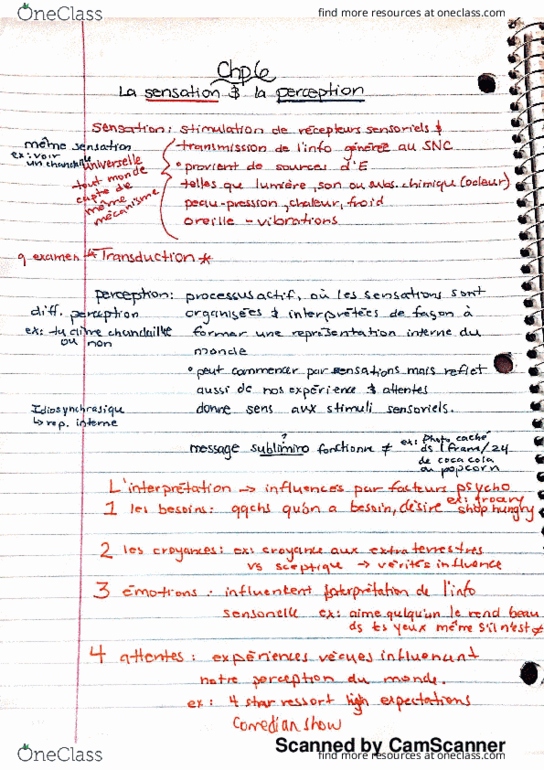 OneClass
find more resources at oneclass.com
Chp 6
La sensation & la perception
Sensation: stimulation de récepteurs sensoriels &
transmission de l'info générée au SNC
• provient de sources d'E
telles que lumière, son ou subs. chimique (odeur)
peau-pression, chaleur, froid
oreille - vibrations
même sensation
ex: voir
un chandaille
universelle
tout monde
capte de
même
mécanisme
q examen * Transduction *
perception: processus actif, où les sensations sont
organisées & interprétées de façon à
former une représentation interne du
monde
diff. perception
ex: tu aime chandaille
ou non
• peut commencer par sensations mais reflet
aussi de nos expérience & attentes
donne sens aux stimuli sensoriels.
Idiosynchrasique
↳ rep. interne
?
message sublimino fonctionne ≠
ex: photo caché
ds 1 fram/24
de coca cola
ou popcorn
L'interprétation → influencés par facteurs psycho
1 les besoins: qqchs qu'on a besoin, désire
ex: grocery
shop hungry
2 les croyances: ex: croyance aux extraterrestres
vs sceptique → vérités influence
3 émotions: influencent interprétation de l'info
sensorielle ex: aime qulqu'un le rend beau
ds ts yeux même s'il n'est ≠
4 attentes: expériences vécues influencent
notre perception du monde.
ex: 4 star ressort high expectations
Comedian show
Scanned by CamScanner
OneClass
find more resources at oneclass.com